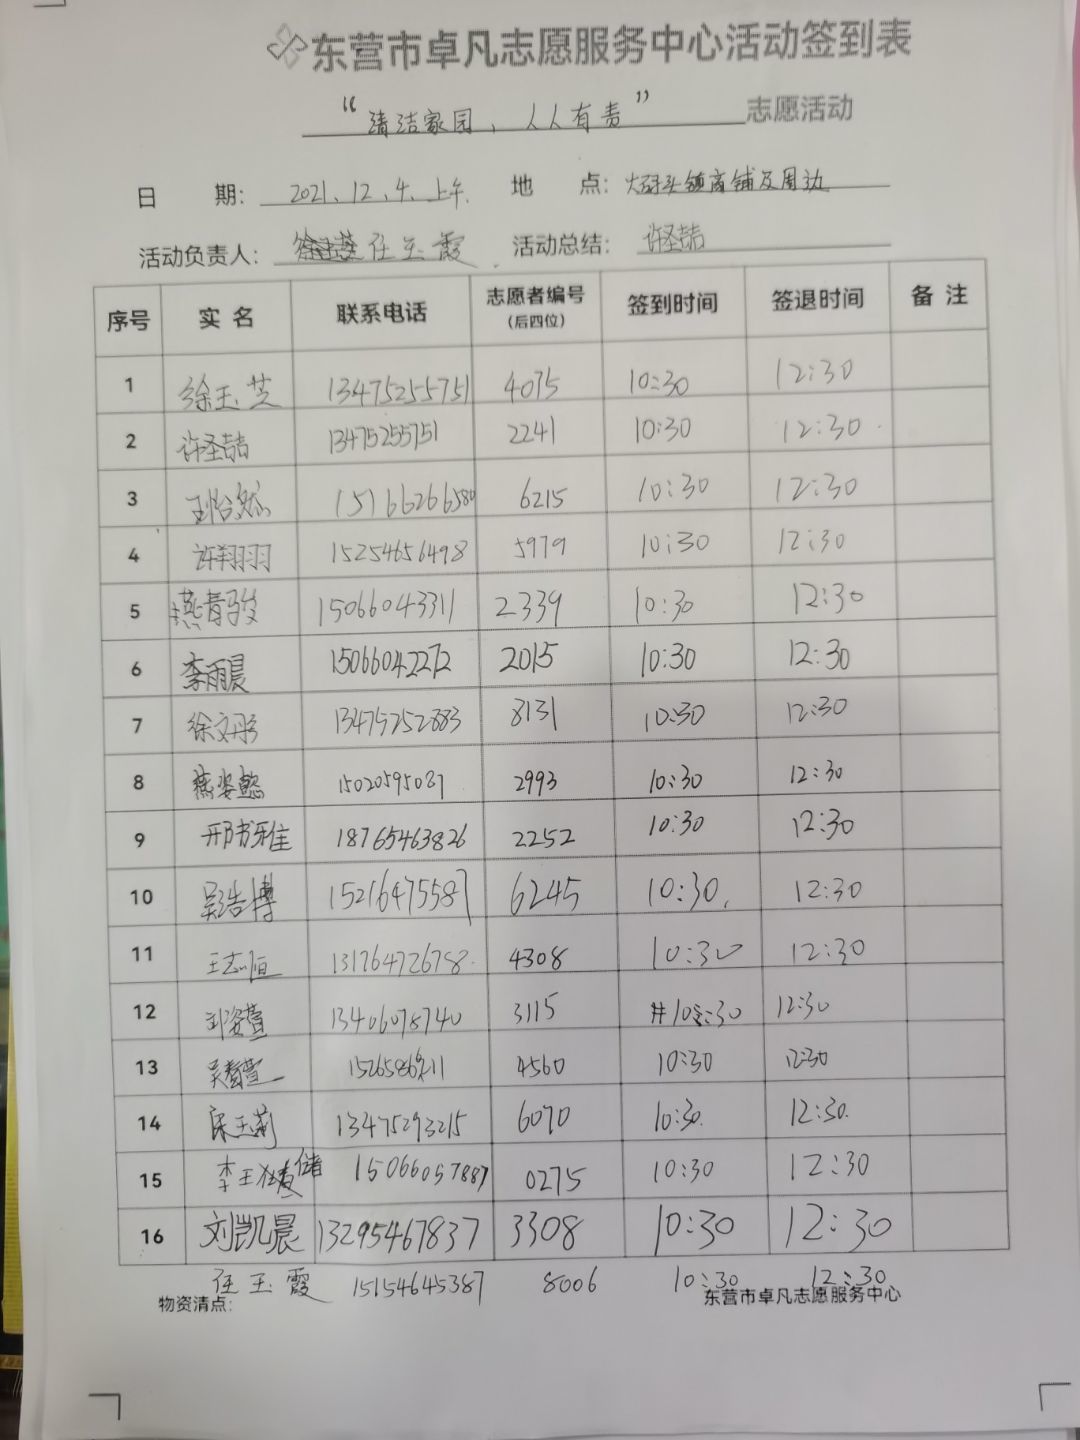 东营市卓凡志愿服务中心活动签到表
“清洁家园，人人有责” 志愿活动
日 期: 2021.12.4.上午. 地 点: 大码头镇商铺及周边
活动负责人: 任玉霞 活动总结: 许圣喆
序号 实名 联系电话 志愿者编号(后四位) 签到时间 签退时间 备注
1 徐玉芝 13475255751 4075 10:30 12:30
2 许圣喆 13475255751 2241 10:30 12:30
3 刘怡然 15166266580 6215 10:30 12:30
4 许翔羽 15254656498 5979 10:30 12:30
5 燕青骏 15066043311 2339 10:30 12:30
6 李雨晨 15066042272 2015 10:30 12:30
7 徐文彤 13475252883 8131 10:30 12:30
8 燕姿懿 15020595087 2993 10:30 12:30
9 邢书雅 18765463826 2252 10:30 12:30
10 吴浩博 15216475587 6245 10:30. 12:30
11 王志恒 131764726758. 4308 10:30 12:30
12 刘姿萱 13406078740 3115 10:30 12:30
13 4560 10:30 12:30
14 13475293215 6070 10:30. 12:30.
15 李王 15066057887 0275 10:30 12:30
16 刘凯晨 13295467837 3308 10:30 12:30
任玉霞 15154645387 8006 10:30 12:30
物资清点: 东营市卓凡志愿服务中心